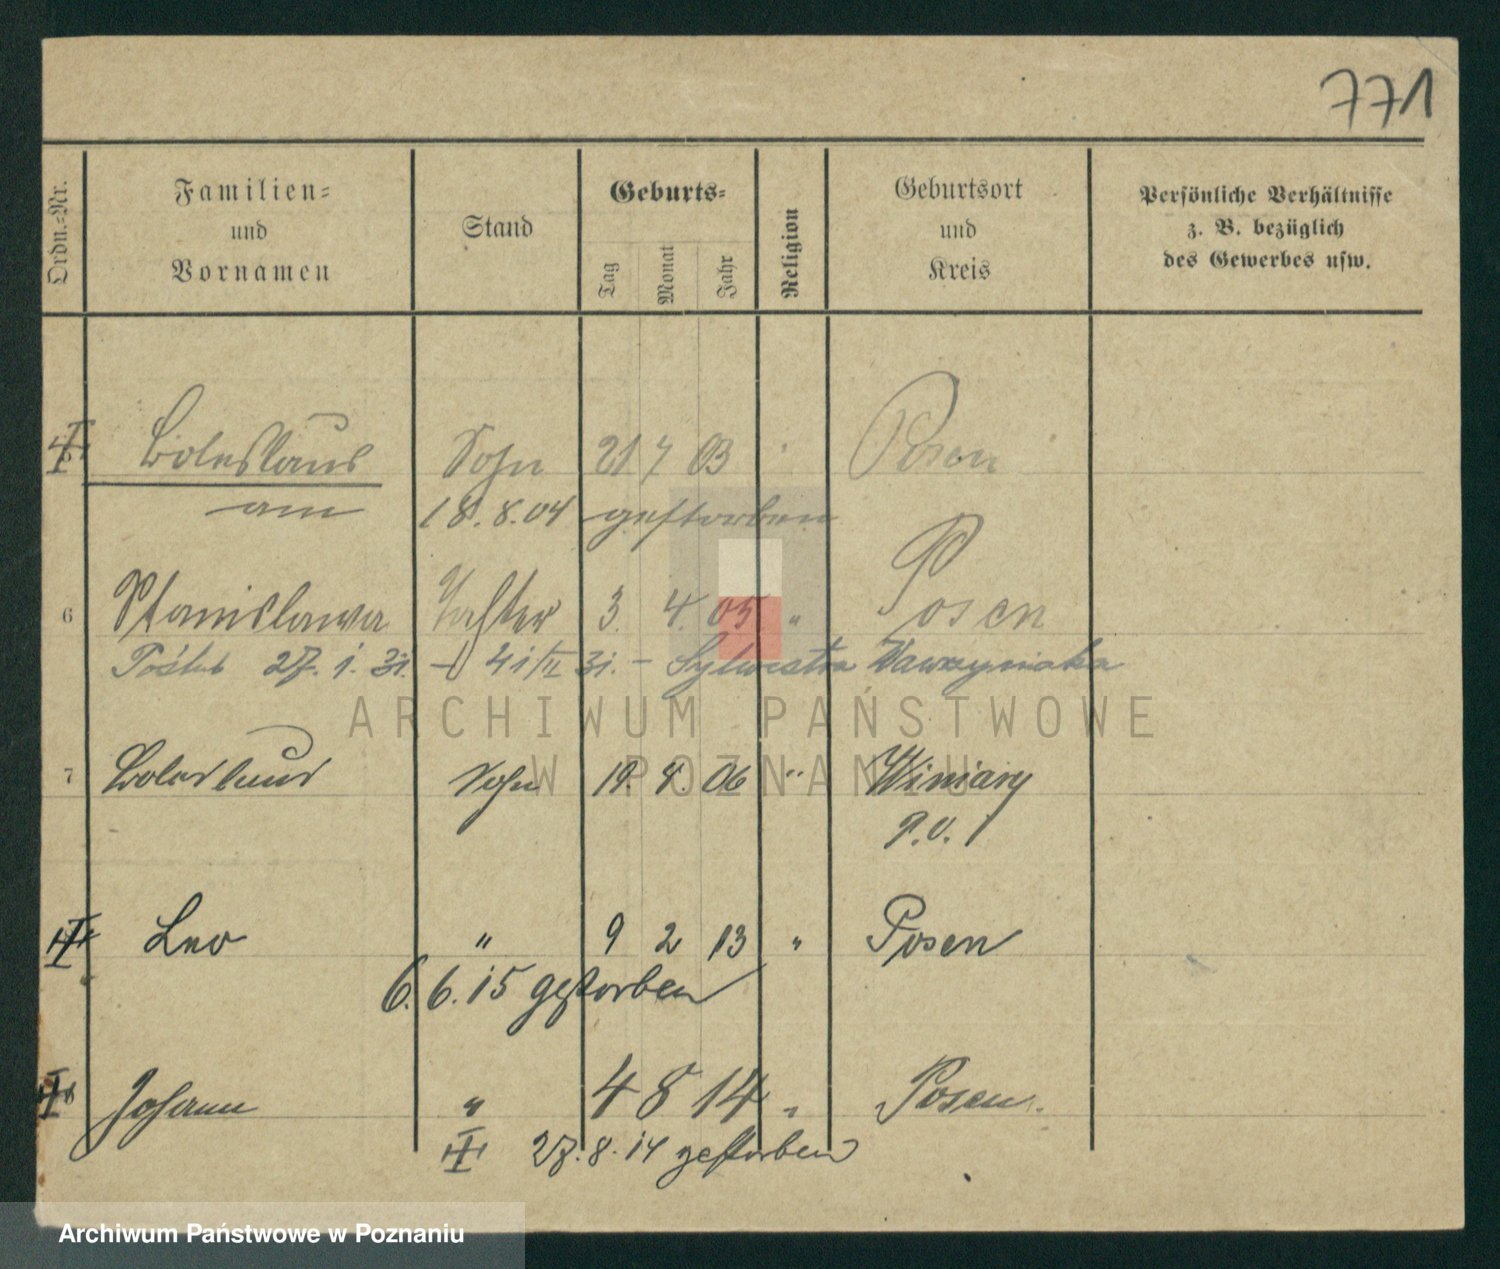 771
Ordn.-Nr.
Familien-
und
Vornamen
Stand
Geburts-
Tag
Monat
Jahr
Religion
Geburtsort
und
Kreis
Persönliche Verhältnisse
z. B. bezüglich
des Gewerbes usw.
Boleslaus Sohn 21 7 03 Posen
am 18. 8. 04 gestorben
6 Stanislawa Tochter 3. 4. 05. " Posen
27. 1. 31. – 41/II 31. – Sylwestra Wawrzyniaka
7 Boleslaus Sohn 19. 8. 06 " Winiary
P.O.
Leo " 9 2 13 " Posen
6. 6. 15 gestorben
Johann " 4 8 14 " Posen.
27. 8. 14 gestorben
ARCHIWUM PAŃSTWOWE
W POZNANIU
Archiwum Państwowe w Poznaniu